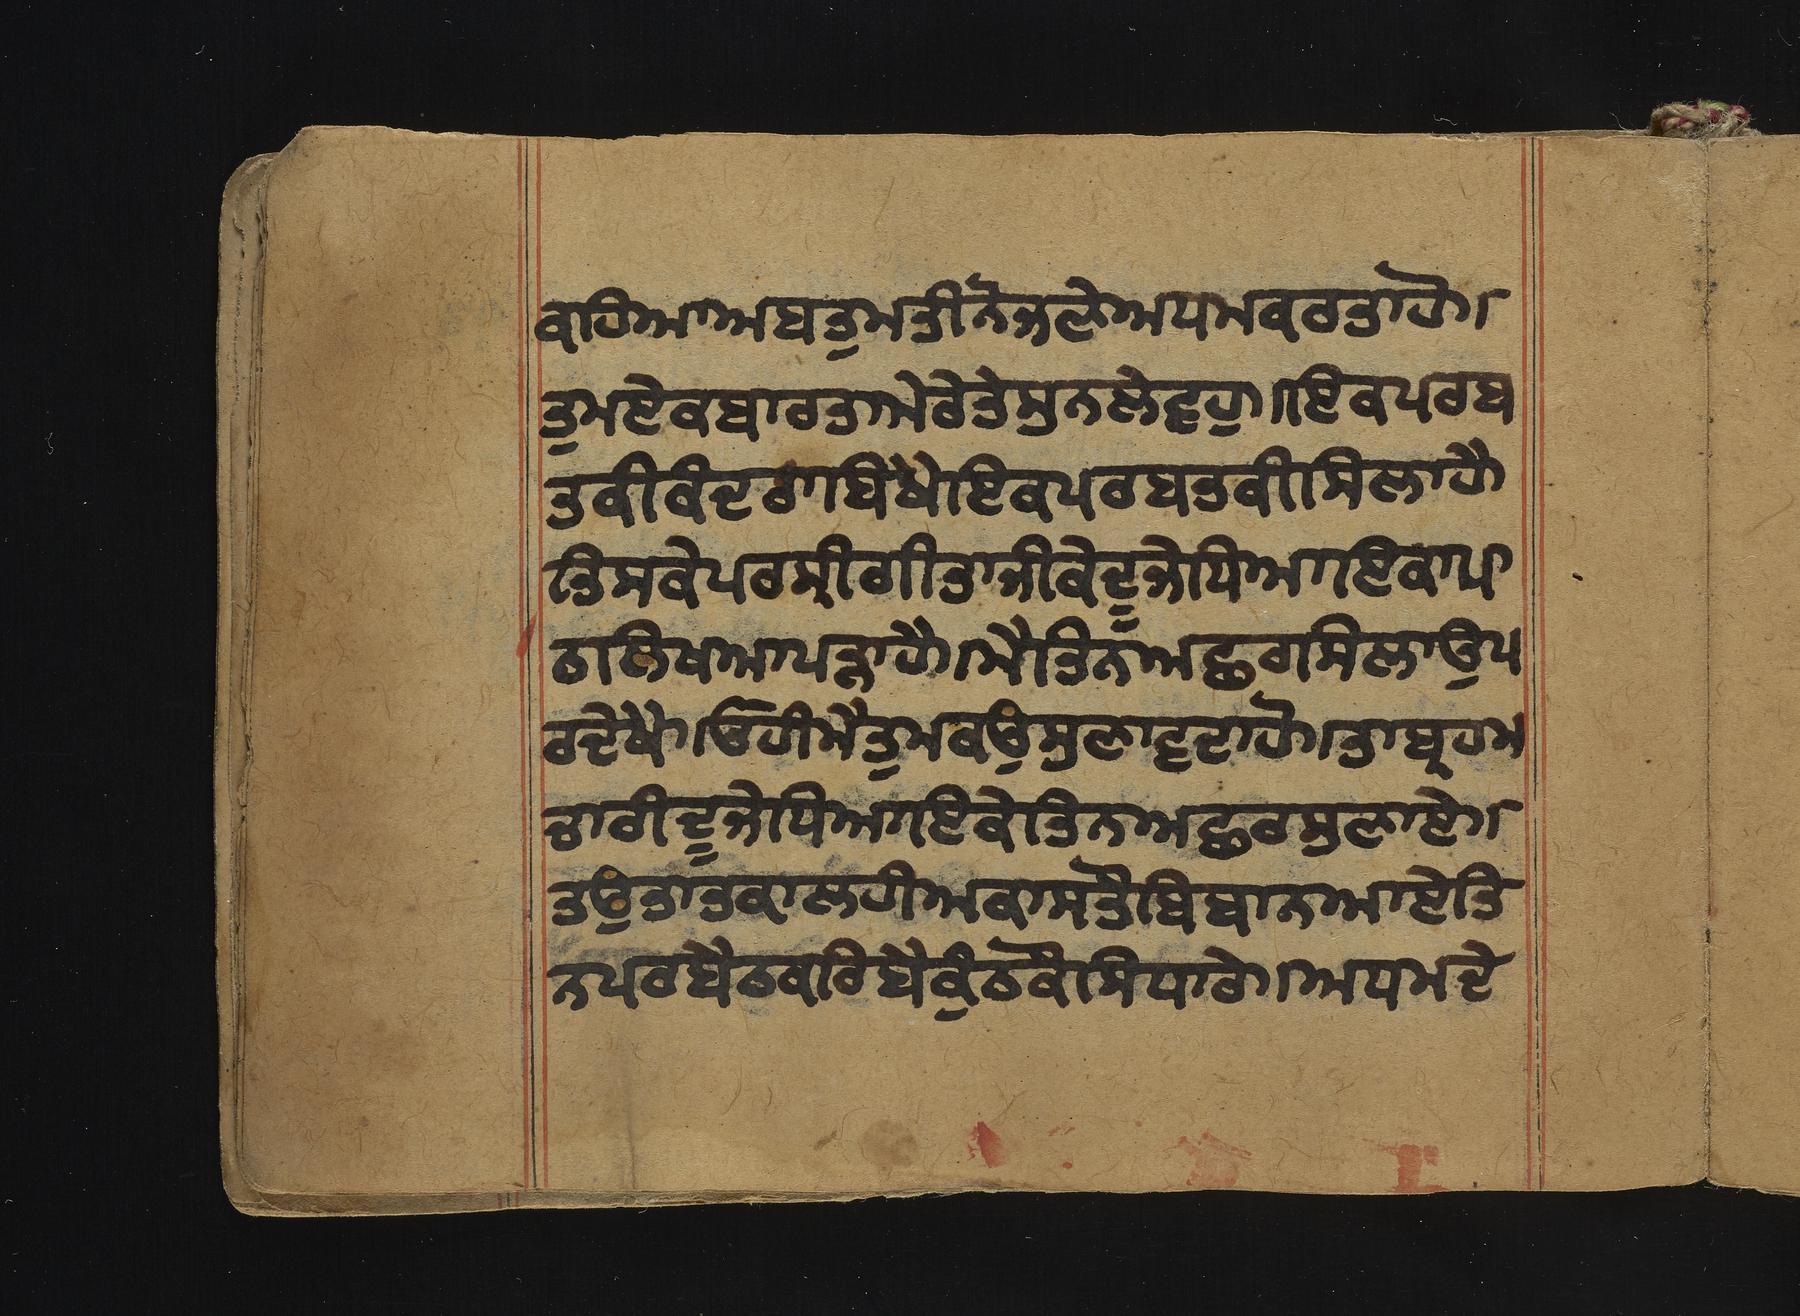 ਕਹਿਆਅਬਤੁਮਤੀਨੋਜਣੇਅਧਮਕਰਤਾਹੋ॥
ਤੁਮਏਕਬਾਰਤਾਮੇਰੇਤੇਸੁਨਲੇਵਹੁ॥ਇਕਪਰਬ
ਤਕੀਕੰਦਰਾਬਿਖੇਇਕਪਰਬਤਕੀਸਿਲਾਹੈ
ਤਿਸਕੇਪਰਸ੍ਰੀਗੀਤਾਜੀਕੇਦੂਜੇਧਿਆਇਕਾਪਾ
ਠਲਿਖਆਪੜ੍ਹਾਹੈ।ਮੈਤਿਨਅਛਰਸਿਲਾਉਪ
ਰਦੇਖੇ।ਓਹੀਮੈਤੁਮਕਉਸੁਣਾਵਦਾਹੋ।ਤਾਬ੍ਰਹਮ
ਚਾਰੀਦੂਜੇਧਿਆਇਕੇਤਿਨਅਛਰਸੁਣਾਏ॥
ਤਉਤਾਤਕਾਲਹੀਅਕਾਸਤੌਬਿਬਾਨਆਏਤਿ
ਨਪਰਬੈਠਕਰਿਬੈਕੁੰਠਕੌਸਿਧਾਰੇ।ਅਧਮਦੇ